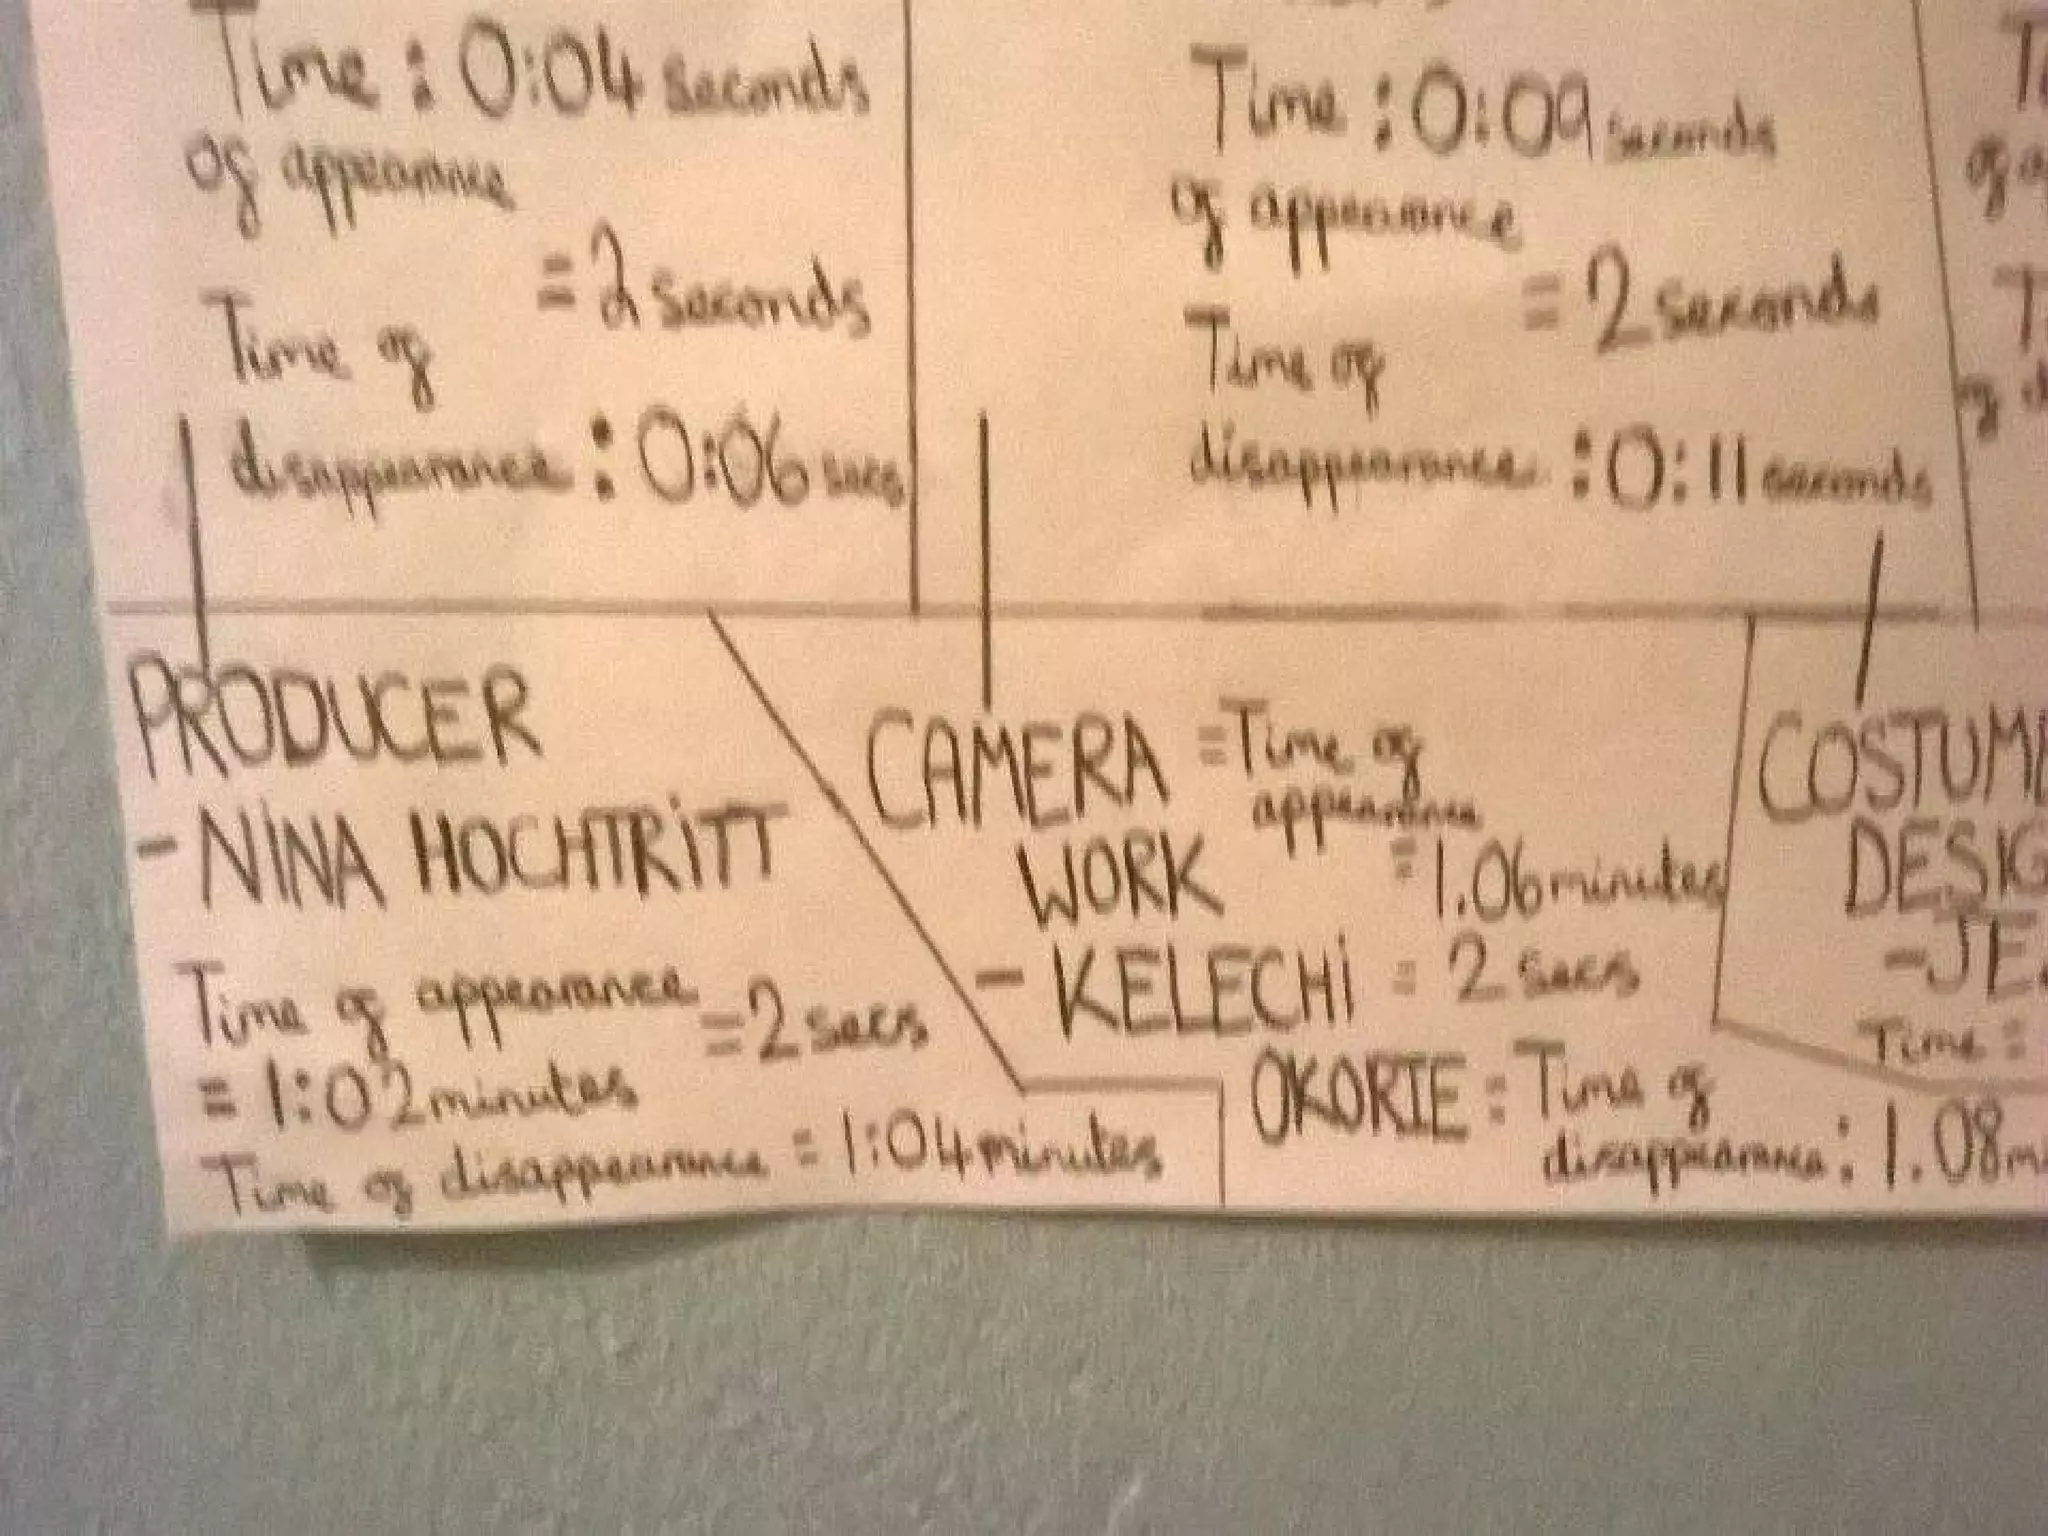 Time : 0:04 seconds
of appearance
= 2 seconds
Time of
disappearance : 0:06 secs
Time : 0:09 seconds
of appearance
= 2 seconds
Time of
disappearance : 0:11 seconds
PRODUCER
- NINA HOCHTRITT
Time of appearance
= 1:02 minutes
= 2 secs
Time of disappearance = 1:04 minutes
CAMERA = Time of
appearance
WORK = 1.06 minutes
- KELECHI = 2 secs
OKORIE = Time of
disappearance : 1.08 m
COSTUME
DESIG
- JE
Time =